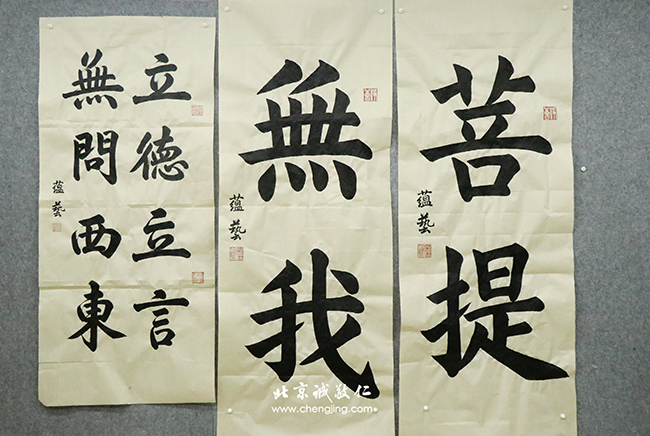 立德立言
無問西東
蕴藝
無我
蕴藝
菩提
蕴藝
北京诚敬仁
www.chengjing.com